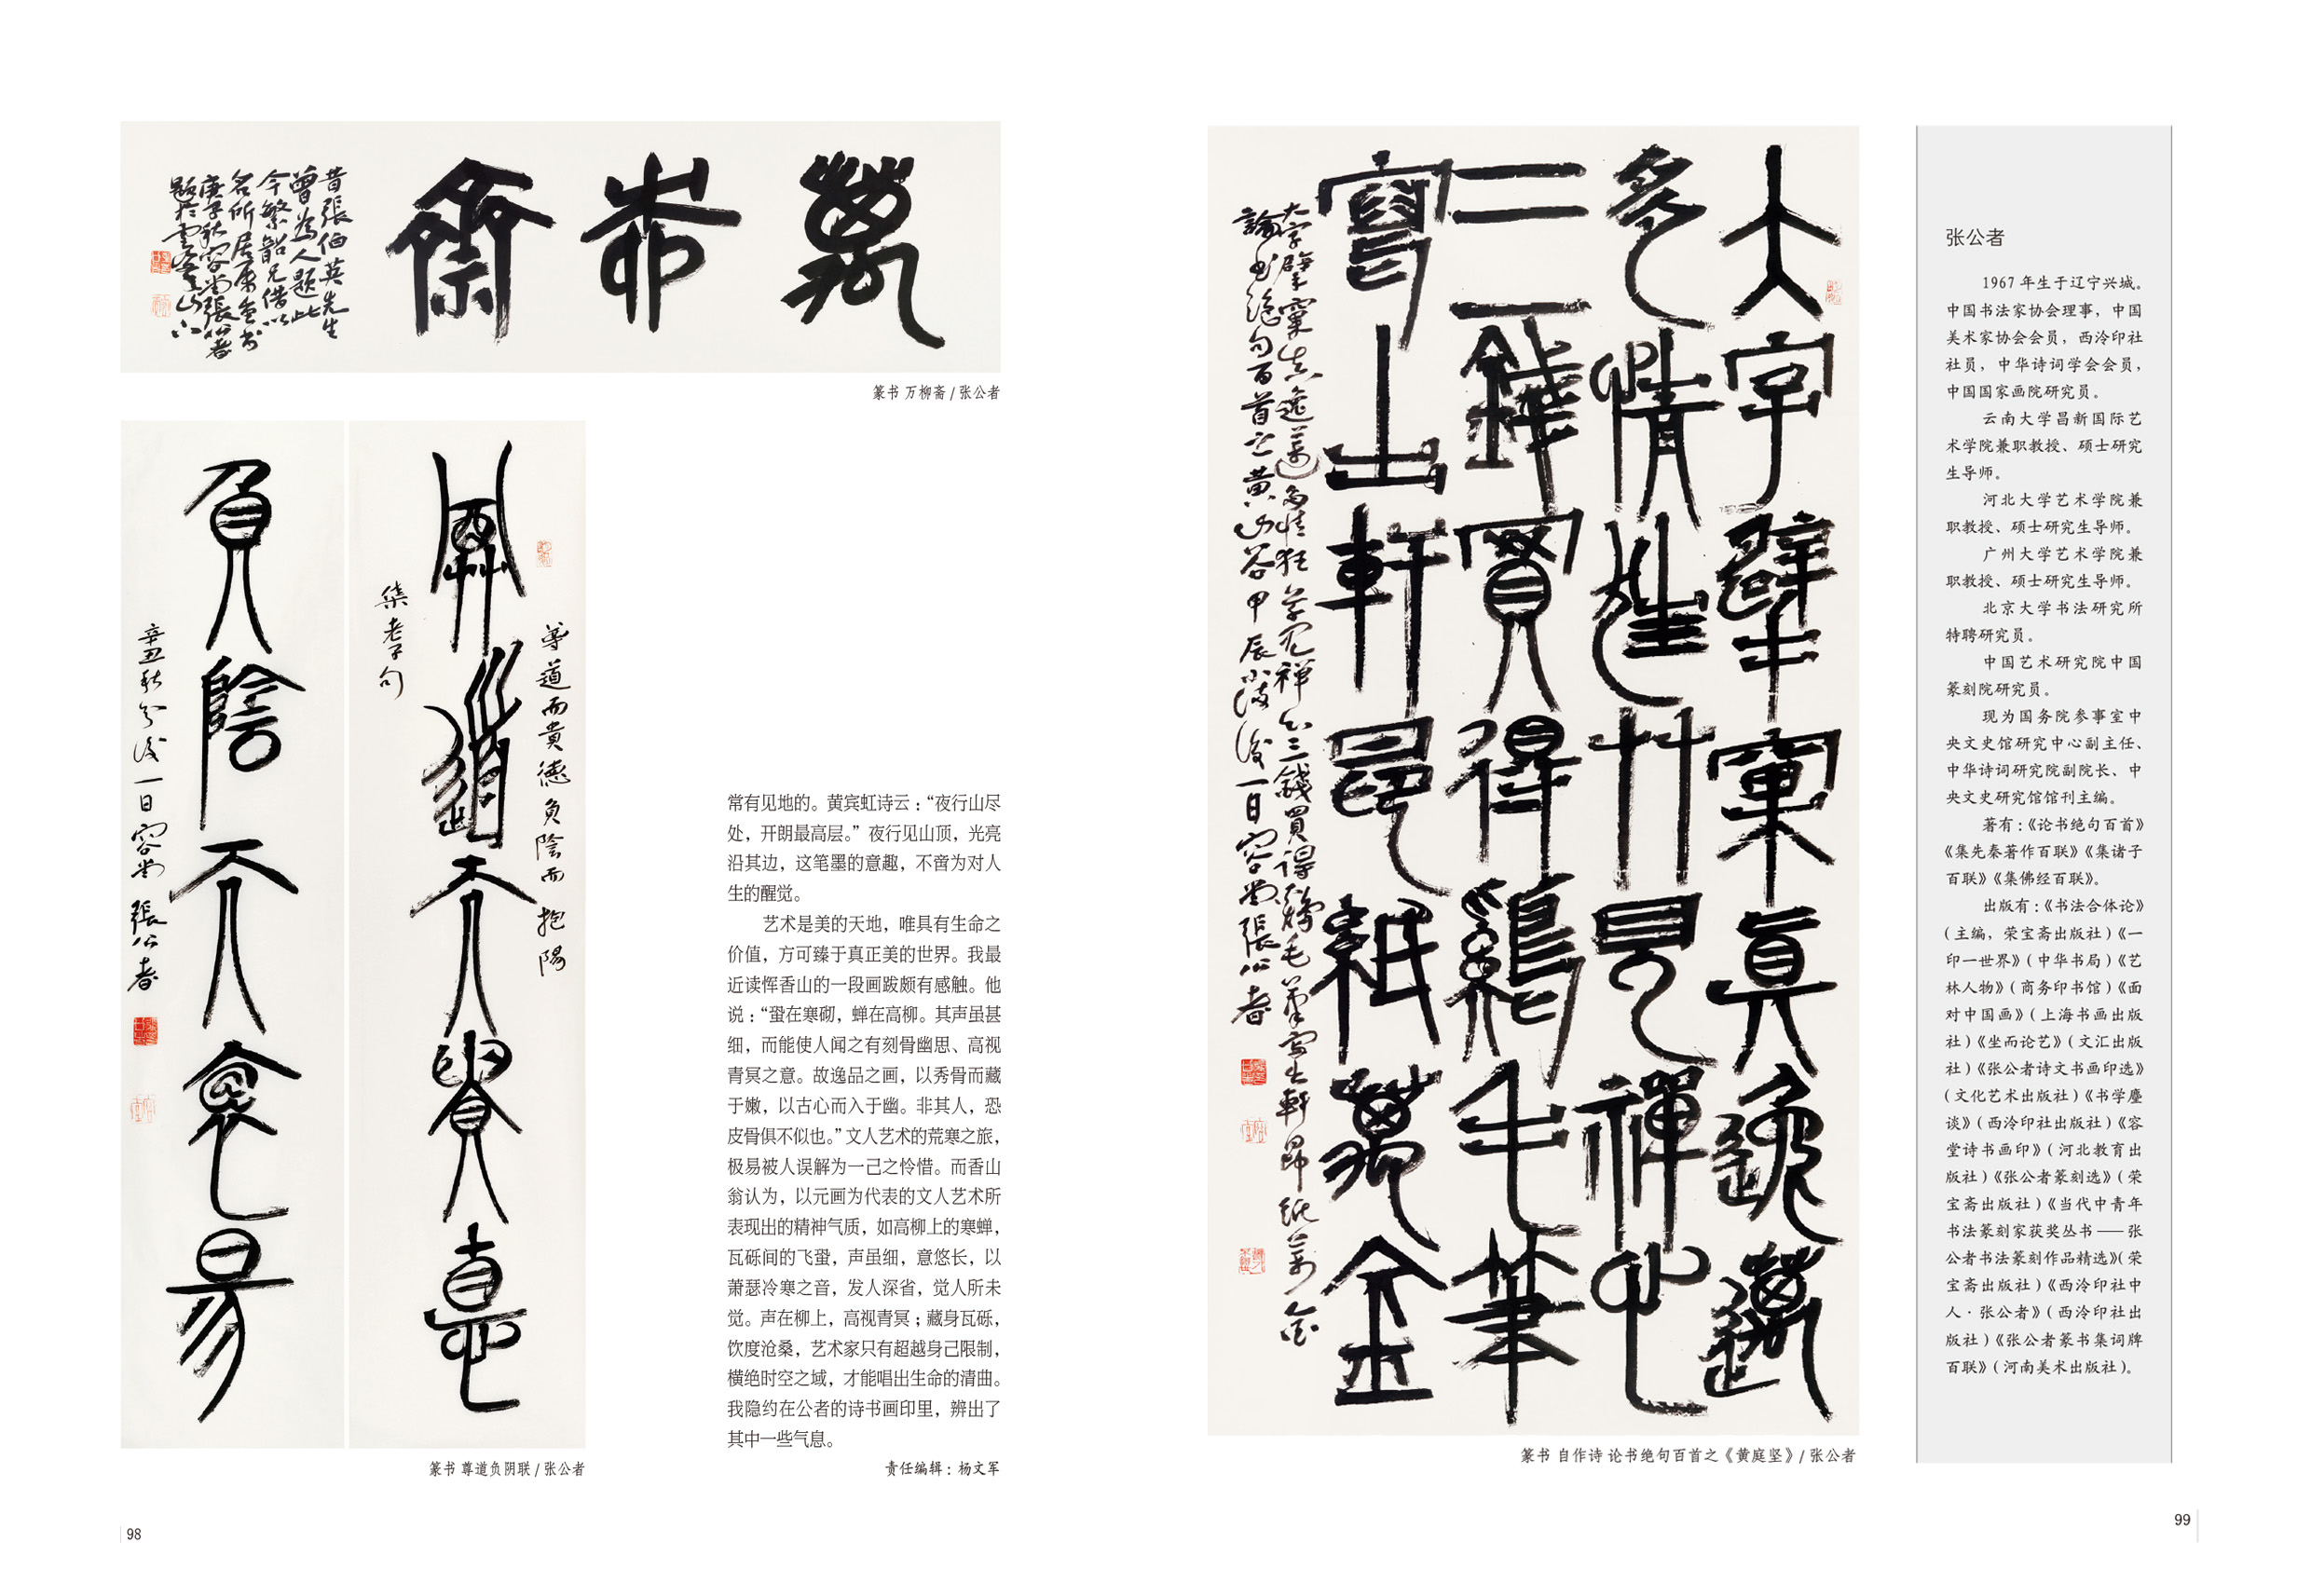 萬柳齋
昔張伯英先生
曾為人題此
今繁韶兄借以
名所居屬余書
庚子秋容堂張公者
題於雲峰山下
篆书 万柳斋 / 张公者
尊道而貴德
尊道而貴德負陰而抱陽
集老子句
負陰而抱陽
辛丑秋分後一日容堂張公者
篆书 尊道负阴联 / 张公者
常有见地的。黄宾虹诗云：“夜行山尽
处，开朗最高层。”夜行见山顶，光亮
沿其边，这笔墨的意趣，不啻为对人
生的醒觉。
艺术是美的天地，唯具有生命之
价值，方可臻于真正美的世界。我最
近读恽香山的一段画跋颇有感触。他
说：“蛩在寒砌，蝉在高柳。其声虽甚
细，而能使人闻之有刻骨幽思、高视
青冥之意。故逸品之画，以秀骨而藏
于嫩，以古心而入于幽。非其人，恐
皮骨俱不似也。”文人艺术的荒寒之旅，
极易被人误解为一己之怜惜。而香山
翁认为，以元画为代表的文人艺术所
表现出的精神气质，如高柳上的寒蝉，
瓦砾间的飞蛩，声虽细，意悠长，以
萧瑟冷寒之音，发人深省，觉人所未
觉。声在柳上，高视青冥；藏身瓦砾，
饮度沧桑，艺术家只有超越身己限制，
横绝时空之域，才能唱出生命的清曲。
我隐约在公者的诗书画印里，辨出了
其中一些气息。
责任编辑：杨文军
98
大字擘窠真逸邁
多情狂草見禪心
三錢買得雞毛筆
寫出軒昂紙萬金
大字擘窠真逸邁多情狂草見禪心三錢買得雞毛筆寫出軒昂紙萬金
論書絕句百首之黃山谷甲辰小滿後一日容堂張公者
篆书 自作诗 论书绝句百首之《黄庭坚》/ 张公者
张公者
1967 年生于辽宁兴城。
中国书法家协会理事，中国
美术家协会会员，西泠印社
社员，中华诗词学会会员，
中国国家画院研究员。
云南大学昌新国际艺
术学院兼职教授、硕士研究
生导师。
河北大学艺术学院兼
职教授、硕士研究生导师。
广州大学艺术学院兼
职教授、硕士研究生导师。
北京大学书法研究所
特聘研究员。
中国艺术研究院中国
篆刻院研究员。
现为国务院参事室中
央文史馆研究中心副主任、
中华诗词研究院副院长、中
央文史研究馆馆刊主编。
著有：《论书绝句百首》
《集先秦著作百联》《集诸子
百联》《集佛经百联》。
出版有：《书法合体论》
（主编，荣宝斋出版社）《一
印一世界》（中华书局）《艺
林人物》（商务印书馆）《面
对中国画》（上海书画出版
社）《坐而论艺》（文汇出版
社）《张公者诗文书画印选》
（文化艺术出版社）《书学麈
谈》（西泠印社出版社）《容
堂诗书画印》（河北教育出
版社）《张公者篆刻选》（荣
宝斋出版社）《当代中青年
书法篆刻家获奖丛书——张
公者书法篆刻作品精选》（荣
宝斋出版社）《西泠印社中
人·张公者》（西泠印社出
版社）《张公者篆书集词牌
百联》（河南美术出版社）。
99